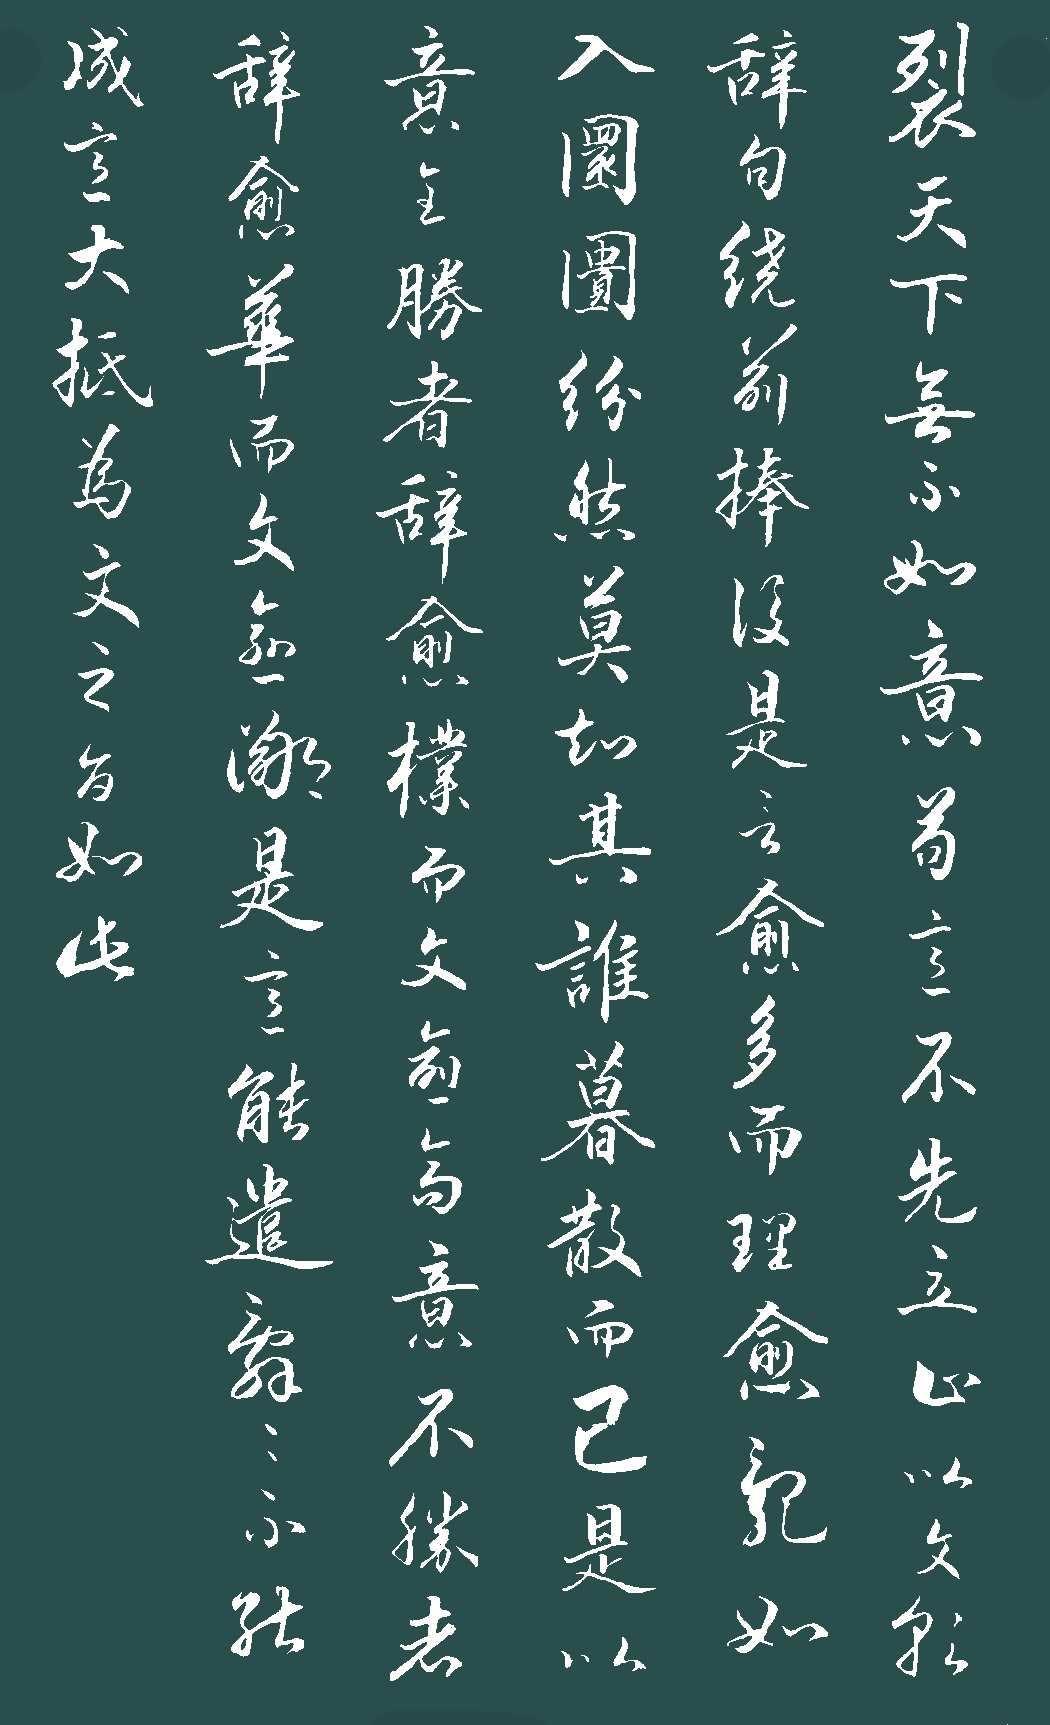 裂天下無不如意苟意不先立止以文彩
辞句绕前捧後是言愈多而理愈亂如
入闤闠紛然莫知其誰暮散而已是以
意全勝者辞愈樸而文愈高意不勝者
辞愈華而文愈鄙是意能遣辭々不能
成意大抵為文之旨如此